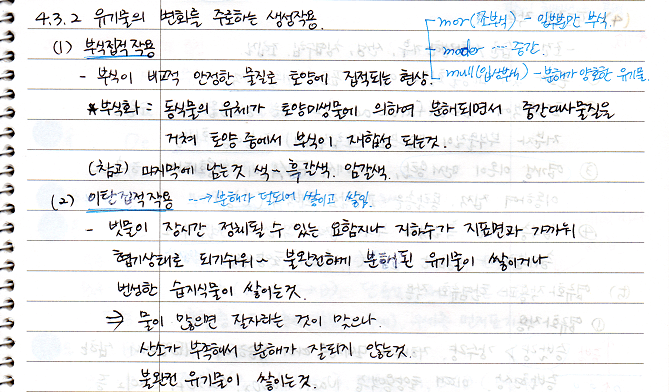 4.3.2 유기물의 변화를 주로하는 생성작용.
mor(조부식) - 일부만 부식.
moder -- 중간.
mull(입상부식) - 분해가 양호한 유기물.
(1) 부식집적작용
- 부식이 비교적 안정한 물질로 토양에 집적되는 현상.
*부식화 = 동식물의 유체가 토양미생물에 의하여 분해되면서 중간대사물질을
거쳐 토양 중에서 부식이 재합성 되는것.
(참고) 마지막에 남는것 색 ~ 흑갈색. 암갈색.
(2) 이탄집적작용 --→ 분해가 덜되어 쌓이고 쌓임.
- 빗물이 장시간 정체될 수 있는 요함지나 지하수가 지표면과 가까워
혐기상태로 되기쉬워 ~ 불완전하게 분해된 유기물이 쌓이거나
번성한 습지식물이 쌓이는것.
⇒ 물이 많으면 잘자라는 것이 맞으나.
산소가 부족해서 분해가 잘되지 않는것.
불완전 유기물이 쌓이는것.